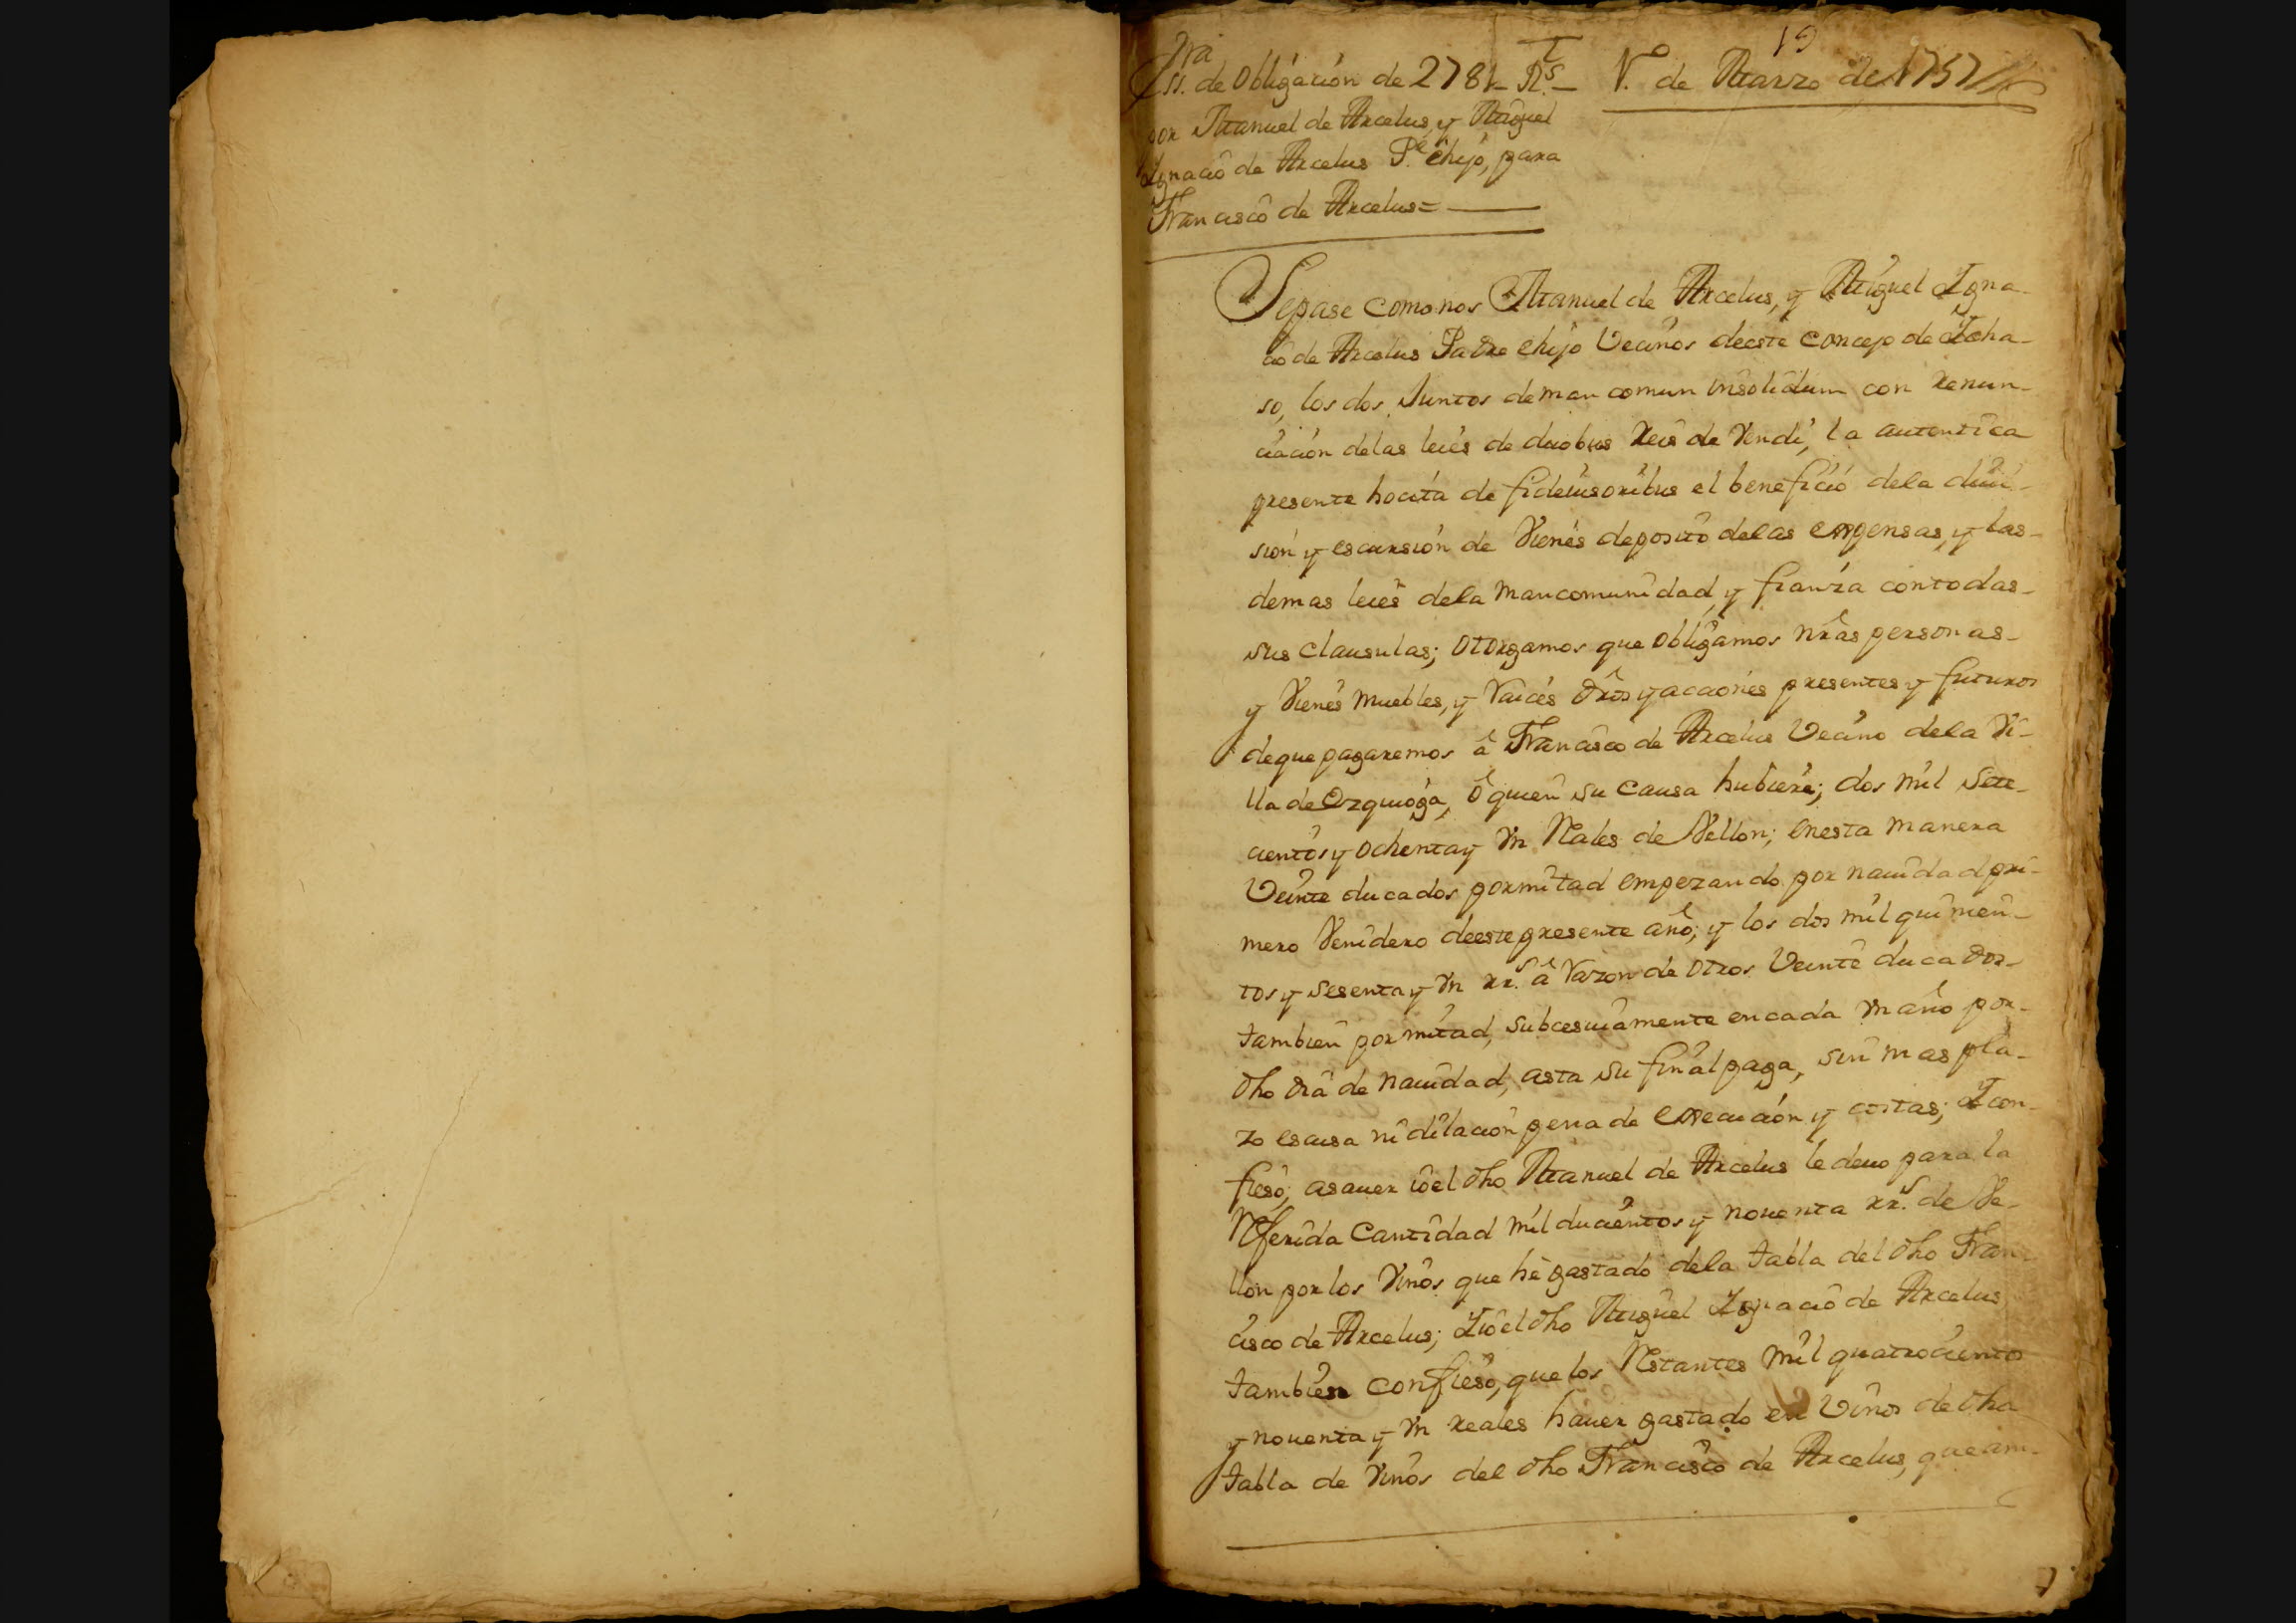 19
Essra. de Obligación de 2781 Rs.
V. de Marzo de 1757
por Manuel de Arcelus, y Miguel
Ignacio de Arcelus Pe. ehijo, para
Francisco de Arcelus=
Sepase como nos Manuel de Arcelus, y Miguel Igna-
cio de Arcelus Padre ehijo Vecinos deeste concejo de Icha-
so, los dos Juntos deman comun insolidum con renun-
ciación delas leies de duobus Reis de Vendi, la autentica
presente hocita de fideiusoribus el beneficio dela divi-
sion y escursión de Vienes deposito delas expensas, y las-
demas leies dela mancomunidad, y fianza contodas-
sus clausulas; otorgamos que obligamos nras personas-
y Vienes muebles, y Raices dros y acciones presentes y futuros
deque pagaremos â Francisco de Arcelus Vecino dela Vi-
lla de Ezquioga, ô quien su causa hubiere; dos mil sete-
cientos y ochentay Vn Rales de Vellon; enesta manera
Veinte ducados pormitad empezando por navidad pri-
mero Venidero deeste presente año; y los dos mil quinien-
tos y sesentay Vn rrs. â Razon de otros Veinte ducados-
tambien pormitad, subcesivamente encada Vn año por-
dho dia de navidad, asta su final paga, sin mas pla-
zo escusa ni dilacion pena de execución y costas; I con-
fieso; asaver io el dho Manuel de Arcelus le devo para la
Referida Cantidad mil ducientos y noventa rrs. de Ve-
llon por los Vinos que hê gastado dela tabla del dho Fran-
cisco de Arcelus; I io el dho Miguel Ignacio de Arcelus
tambien confieso, que los Restantes mil quatrocientos
y noventa y Vn reales haver gastado en Vinos de dha
tabla de Vinos del dho Francisco de Arcelus, que am-